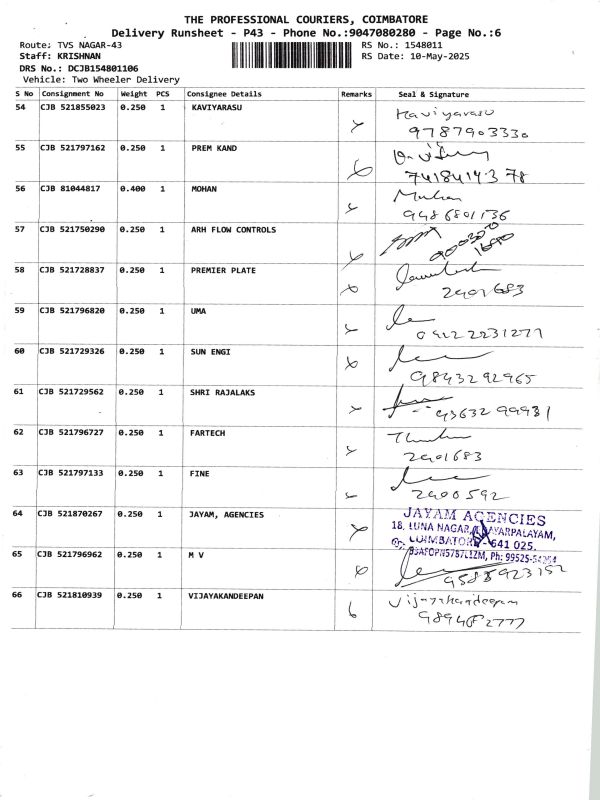 THE PROFESSIONAL COURIERS, COIMBATORE
Delivery Runsheet - P43 - Phone No.:9047080280 - Page No.:6
Route: TVS NAGAR-43 RS No.: 1548011
Staff: KRISHNAN RS Date: 10-May-2025
DRS No.: DCJB154801106
Vehicle: Two Wheeler Delivery
S No Consignment No Weight PCS Consignee Details Remarks Seal & Signature
54 CJB 521855023 0.250 1 KAVIYARASU Kaviyarasu
9787903330
55 CJB 521797162 0.250 1 PREM KAND
7418414378
56 CJB 81044817 0.400 1 MOHAN Mohan
9486801136
57 CJB 521750290 0.250 1 ARH FLOW CONTROLS
58 CJB 521728837 0.250 1 PREMIER PLATE
2401683
59 CJB 521796820 0.250 1 UMA
0422 2231277
60 CJB 521729326 0.250 1 SUN ENGI
9843292965
61 CJB 521729562 0.250 1 SHRI RAJALAKS
9363299931
62 CJB 521796727 0.250 1 FARTECH
2401683
63 CJB 521797133 0.250 1 FINE
2400592
64 CJB 521870267 0.250 1 JAYAM, AGENCIES JAYAM AGENCIES
18, LUNA NAGAR,
COIMBATORE - 641 025.
65 CJB 521796962 0.250 1 M V
66 CJB 521810939 0.250 1 VIJAYAKANDEEPAN Vijayakandeepan